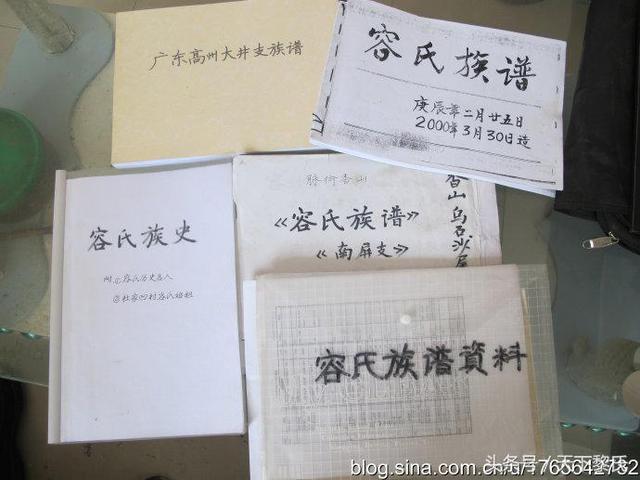 广东高州大井支族谱
容氏族谱
庚辰年二月廿五日
2000年3月30日造
容氏族史
附：①容氏历史名人
《容氏族谱》
《南屏支》
香山乌石沙尾
容氏族谱資料
头条号/天下黎氏
blog.sina.com.cn/u/1765642732